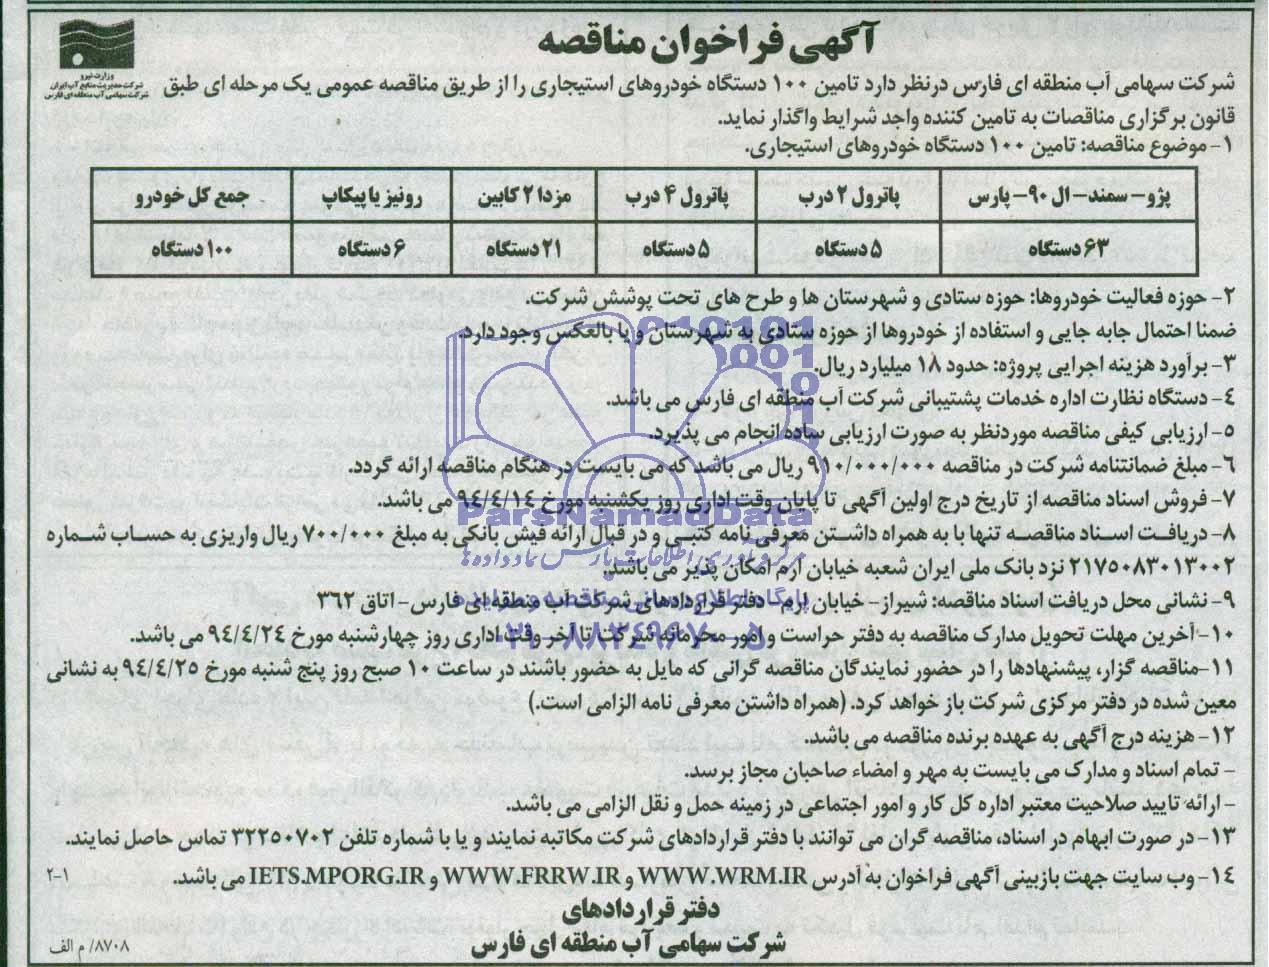 آگهی فراخوان مناقصه
وزارت نیرو
شرکت مدیریت منابع آب ایران
شرکت سهامی آب منطقه ای فارس
شرکت سهامی آب منطقه ای فارس درنظر دارد تامین ۱۰۰ دستگاه خودروهای استیجاری را از طریق مناقصه عمومی یک مرحله ای طبق
قانون برگزاری مناقصات به تامین کننده واجد شرایط واگذار نماید.
۱- موضوع مناقصه: تامین ۱۰۰ دستگاه خودروهای استیجاری.
پژو- سمند- ال ۹۰- پارس پاترول ۲ درب پاترول ۴ درب مزدا ۲ کابین رونیز یا پیکاپ جمع کل خودرو
۶۳ دستگاه ۵ دستگاه ۵ دستگاه ۲۱ دستگاه ۶ دستگاه ۱۰۰ دستگاه
۲- حوزه فعالیت خودروها: حوزه ستادی و شهرستان ها و طرح های تحت پوشش شرکت.
ضمنا احتمال جابه جایی و استفاده از خودروها از حوزه ستادی به شهرستان و یا بالعکس وجود دارد.
۳- برآورد هزینه اجرایی پروژه: حدود ۱۸ میلیارد ریال.
۴- دستگاه نظارت اداره خدمات پشتیبانی شرکت آب منطقه ای فارس می باشد.
۵- ارزیابی کیفی مناقصه موردنظر به صورت ارزیابی ساده انجام می پذیرد.
۶- مبلغ ضمانتنامه شرکت در مناقصه ۹۱۰/۰۰۰/۰۰۰ ریال می باشد که می بایست در هنگام مناقصه ارائه گردد.
۷- فروش اسناد مناقصه از تاریخ درج اولین آگهی تا پایان وقت اداری روز یکشنبه مورخ ۹۴/۴/۱۴ می باشد.
ParsNamadData
۸- دریافت اسناد مناقصه تنها با به همراه داشتن معرفی نامه کتبی و در قبال ارائه فیش بانکی به مبلغ ۷۰۰/۰۰۰ ریال واریزی به حساب شماره
مرکز فرآوری اطلاعات پارس نماد داده ها
۲۱۷۵۰۸۳۰۱۳۰۰۲ نزد بانک ملی ایران شعبه خیابان ارم امکان پذیر می باشد.
پایگاه اطلاع رسانی مناقصه و مزایده
۹- نشانی محل دریافت اسناد مناقصه: شیراز- خیابان ارم- دفتر قراردادهای شرکت آب منطقه ای فارس- اتاق ۳۶۲
۰۲۱-۸۸۳۴۹۶۷۰-۵
۱۰- آخرین مهلت تحویل مدارک مناقصه به دفتر حراست و امور محرمانه شرکت تا آخر وقت اداری روز چهارشنبه مورخ ۹۴/۴/۲۴ می باشد.
۱۱- مناقصه گزار، پیشنهادها را در حضور نمایندگان مناقصه گرانی که مایل به حضور باشند در ساعت ۱۰ صبح روز پنج شنبه مورخ ۹۴/۴/۲۵ به نشانی
معین شده در دفتر مرکزی شرکت باز خواهد کرد. (همراه داشتن معرفی نامه الزامی است.)
۱۲- هزینه درج آگهی به عهده برنده مناقصه می باشد.
- تمام اسناد و مدارک می بایست به مهر و امضاء صاحبان مجاز برسد.
- ارائه تایید صلاحیت معتبر اداره کل کار و امور اجتماعی در زمینه حمل و نقل الزامی می باشد.
۱۳- در صورت ابهام در اسناد، مناقصه گران می توانند با دفتر قراردادهای شرکت مکاتبه نمایند و یا با شماره تلفن ۳۲۲۵۰۷۰۲ تماس حاصل نمایند.
۱۴- وب سایت جهت بازبینی آگهی فراخوان به آدرس WWW.WRM.IR و WWW.FRRW.IR و IETS.MPORG.IR می باشد.
۲-۱
دفتر قراردادهای
شرکت سهامی آب منطقه ای فارس
۸۷۰۸/ م الف